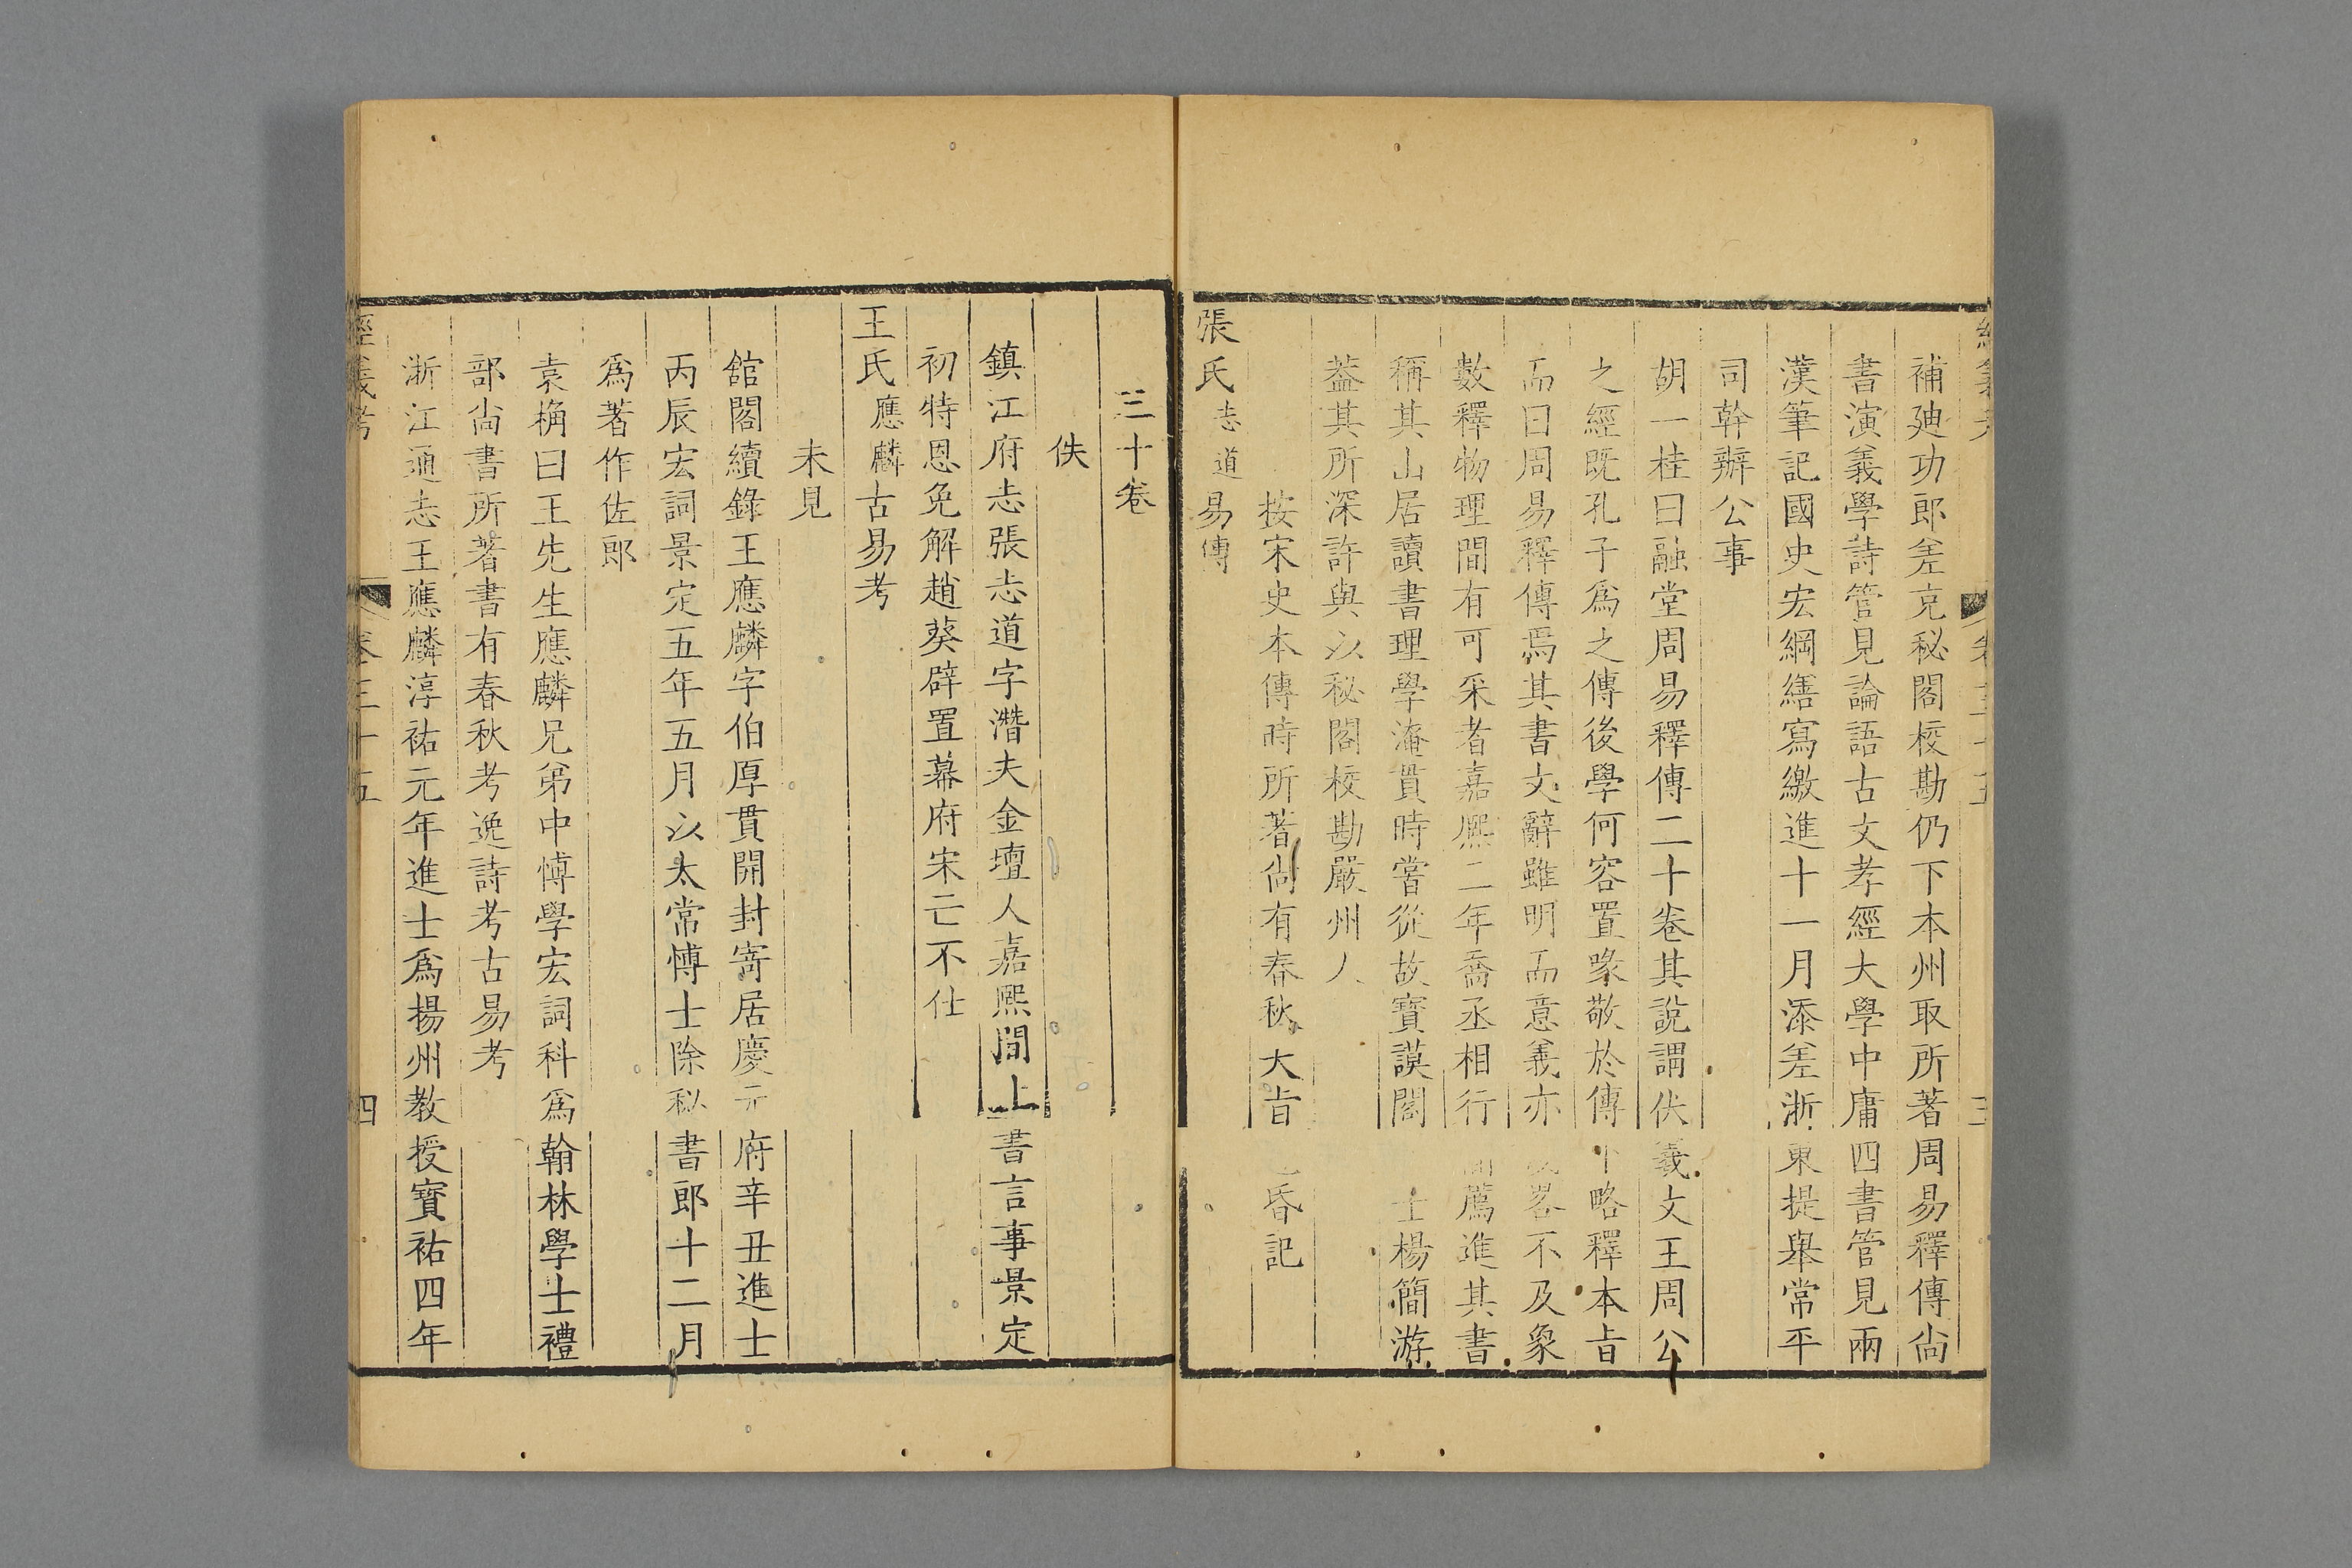 補廸功郎差充秘閣校勘仍下本州取所著周易釋傳尚
書演義學詩管見論語古文孝經大學中庸四書管見兩
漢筆記國史宏綱繕寫繳進十一月添差浙東提舉常平
司幹辦公事
胡一桂曰融堂周易釋傳二十卷其說謂伏羲文王周公
之經既孔子爲之傳後學何容置喙敬於傳下略釋本㫖
而曰周易釋傳焉其書文辭雖明而意義亦畧不及象
數釋物理間有可采者嘉熈二年喬丞相行薦進其書
稱其山居讀書理學淹貫時嘗從故寳謨閣士楊簡游
葢其所深許與以秘閣校勘嚴州人
按宋史本傳時所著尚有春秋大㫖昏記
張氏志道易傳
三十卷
佚
鎮江府志張志道字潛夫金壇人嘉熈間上書言事景定
初特恩免解趙葵辟置幕府宋亡不仕
王氏應麟古易考
未見
舘閣續錄王應麟字伯厚貫開封寄居慶元府辛丑進士
丙辰宏詞景定五年五月以太常博士除秘書郎十二月
爲著作佐郎
袁桷曰王先生應麟兄弟中博學宏詞科爲翰林學士禮
部尚書所著書有春秋考逸詩考古易考
浙江通志王應麟淳祐元年進士爲楊州教授寳祐四年
經義考 卷三十五 四